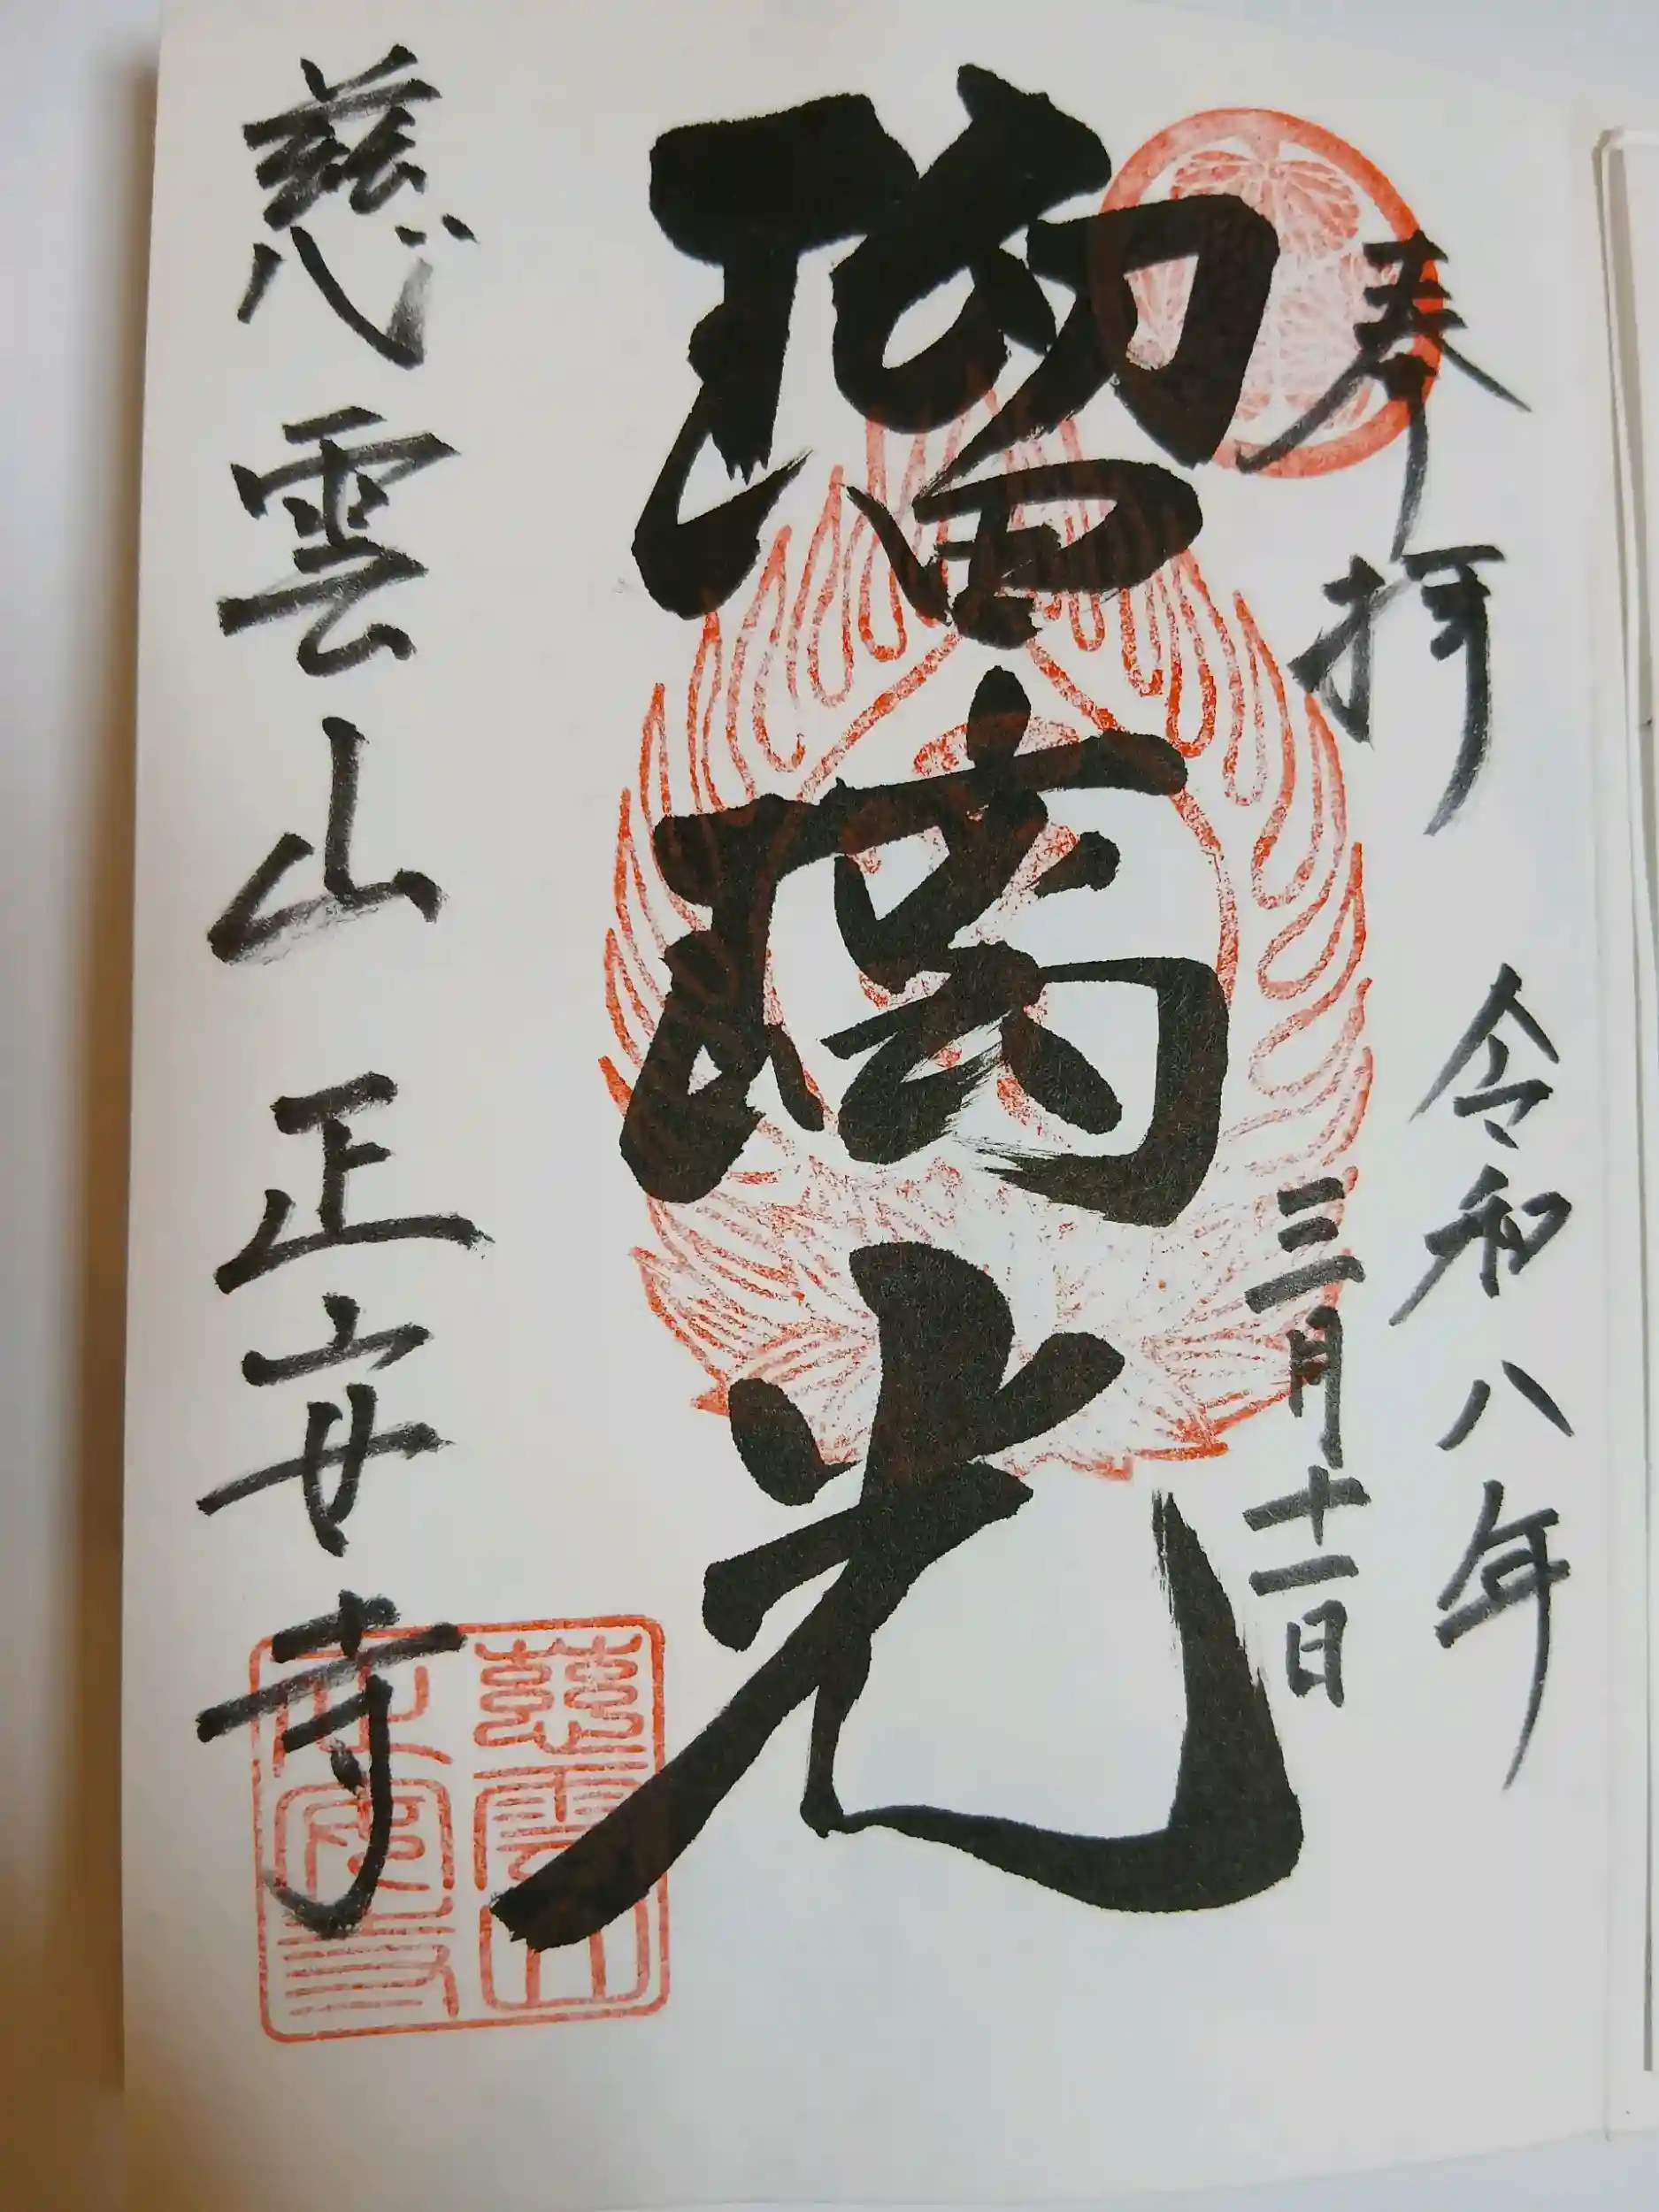 奉拝
令和八年
三月十一日
瑠璃光
慈雲山正安寺
慈雲山
正安寺